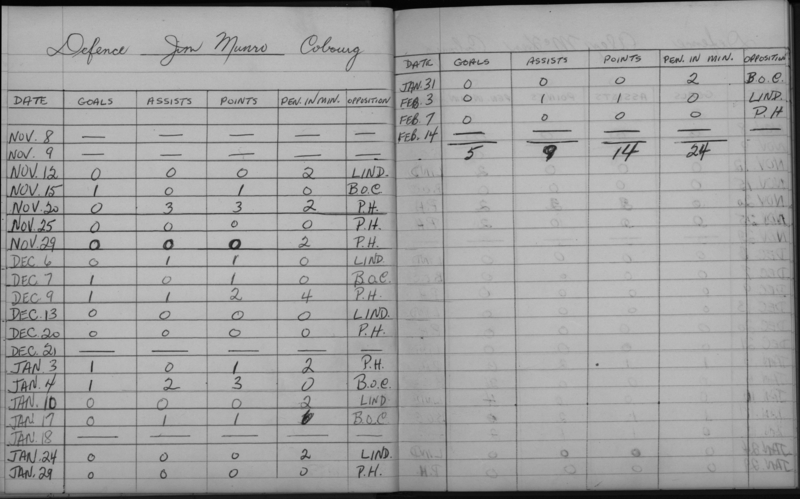 Defence Jim Munro Cobourg
DATE GOALS ASSISTS POINTS PEN. IN MIN. OPPOSITION
NOV. 8 — — — — —
NOV. 9 — — — — —
NOV. 12 0 0 0 2 LIND.
NOV. 15 1 0 1 0 B.O.C.
NOV. 20 0 3 3 2 P.H.
NOV. 25 0 0 0 0 P.H.
NOV. 29 0 0 0 2 P.H.
DEC. 6 0 1 1 0 LIND.
DEC. 7 1 0 1 0 B.O.C.
DEC. 9 1 1 2 4 P.H.
DEC. 13 0 0 0 0 LIND.
DEC. 20 0 0 0 0 P.H.
DEC. 21 — — — — —
JAN 3 1 0 1 2 P.H.
JAN. 4 1 2 3 0 B.O.C.
JAN. 10 0 0 0 2 LIND
JAN. 17 0 1 1 B.O.C
JAN. 18 — — — — —
JAN. 24 0 0 0 2 LIND.
JAN. 29 0 0 0 0 P.H.
DATE GOALS ASSISTS POINTS PEN. IN MIN. OPPOSITION
JAN. 31 0 0 0 2 B.O.C.
FEB. 3 0 1 1 0 LIND.
FEB. 7 0 0 0 0 P.H
FEB. 14 — — — — —
5 9 14 24